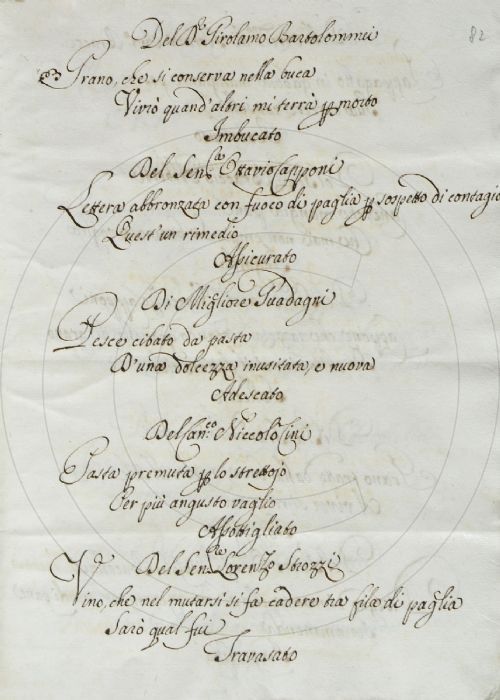 82
Del D.r Girolamo Bartolommei
Grano, che si conserva nella buca
Vivrò quand'altri mi terrà p morto
Imbucato
Del Sen.re Ottavio Capponi
Lettera abbronzata con fuoco di paglia p sospetto di contagio
Quest'un rimedio
Assicurato
Di Migliore Guadagni
Pesce cibato da pasta
D'una dolcezza inusitata, e nuova
Adescato
Del Can.co Niccolò Cini
Pasta premuta p lo strettojo
Per più angusto vaglio
Assottigliato
Del Sen.re Lorenzo Strozzi
Vino, che nel mutarsi si fa cadere tra fila di paglia
Sarò qual fui
Travasato